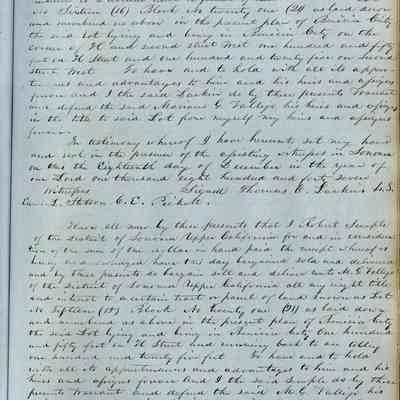 No Sixteen (16) Block No twenty one (21) as laid down
and numbered as above in the present plan of Benicia City
the said Lot lying and being in Benicia City on the
corner of H and second street West one hundred and fifty
feet on H Street and one hundred and twenty five on second
Street West To have and to hold with all its appur
tenances and advantages to him and his heirs and assigns
forever And I the said Larkin do by these presents Warrant
and defend the said Mariano G. Vallejo his heirs and assigns
in the title to said Lot from myself my heirs and assigns
forever.
In testimony whereof I have hereunto set my hand
and seal in the presence of the attesting witnesses in Sonoma
on this the Eighteenth day of December in the year of
our Lord one thousand eight hundred and forty seven
Witnesses Signed Thomas O. Larkin L.S.
L. Stetson C. E. Pickett.
Know all men by these presents that I Robert Semple
of the District of Sonoma Upper California for and in consider
ation of the sum of one dollar in hand paid the receipt whereof is
being acknowledged have this day bargained sold and delivered
and by these presents do bargain sell and deliver unto M. G. Vallejo
of the District of Sonoma Upper California all my right title
and interest to a certain tract or parcel of land known as Lot
No Fifteen (15) Block No twenty one (21) as laid down
and numbered as above in the present plan of Benicia City
the said Lot lying and being in said City One hundred
and fifty feet on H Street and running back to an alley
one hundred and twenty five feet To have and to hold
with all its appurtenances and advantages to him and his
heirs and assigns forever And I the said Semple do by these
presents Warrant and defend the said M. G. Vallejo his